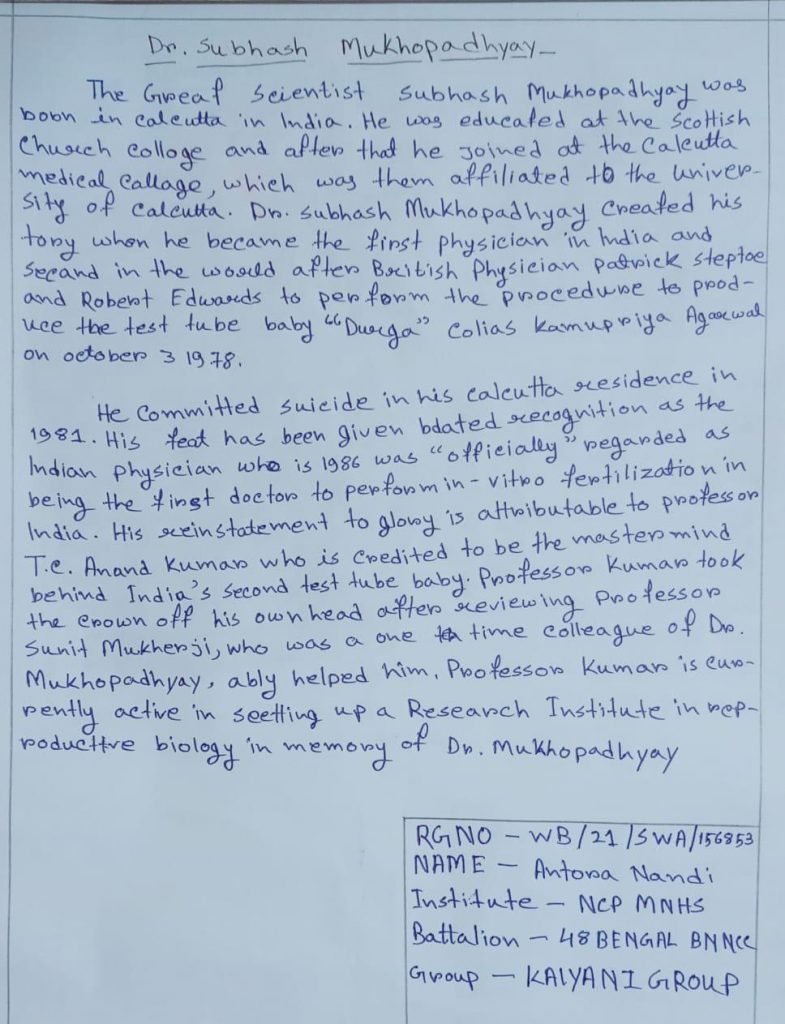 Dr. Subhash Mukhopadhyay-
The Great Scientist Subhash Mukhopadhyay was
born in calcutta in India. He was educated at the Scottish
Church colloge and after that he joined at the Calcutta
medical callage, which was them affiliated to the univer-
sity of calcutta. Dr. Subhash Mukhopadhyay Created his
tory when he became the first physician in India and
Secand in the world after British Physician patrick steptoe
and Robert Edwards to perform the procedure to prod-
uce the test tube baby "Durga" Colias Kamupriya Agarwal
on october 3 1978.
He Committed suicide in his calcutta residence in
1981. His feat has been given bdated recognition as the
Indian physician who is 1986 was "officially" regarded as
being the first doctor to perform in-vitro fertilization in
India. His reinstatement to glory is attributable to professor
T.C. Anand Kumar who is credited to be the mastermind
behind India's Second test tube baby. Professor Kumar took
the crown off his own head after reviewing Professor
Sunit Mukherji, who was a one time colleague of Dr.
Mukhopadhyay, ably helped him. Professor Kumar is cur-
rently active in seetting up a Research Institute in rep-
roductive biology in memory of Dr. Mukhopadhyay
RGNO - WB/21/SWA/156853
NAME - Antora Nandi
Institute - NCP MNHS
Battalion - 48 BENGAL BN NCC
Group - KALYANI GROUP